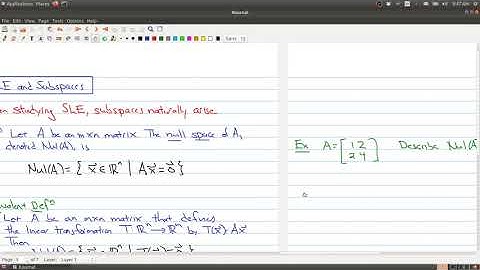 Applications Places
Xournal
File Edit View Page Tools Options Help
LE and Subspaces
n studying SLE, subspaces naturally arise.
Let A be an mxn matrix. The null space of A,
denoted Nul(A), is
Nul(A) = { x⃗ ∈ ℝⁿ | Ax⃗ = 0⃗ }
Defⁿ
Let A be an mxn matrix that defines
the linear transformation T: ℝⁿ → ℝᵐ by T(x⃗) = Ax⃗
Then
Ex A = [1 2
2 4] Describe Nul(A
Page of 7 Layer: Layer 1